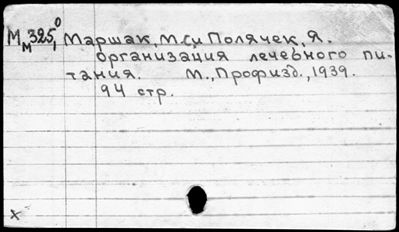 М М 325,0 Маршак, М.С. и Полячек, Я.
организация лечебного пи-
тания. М., Профизд., 1939.
94 стр.
x